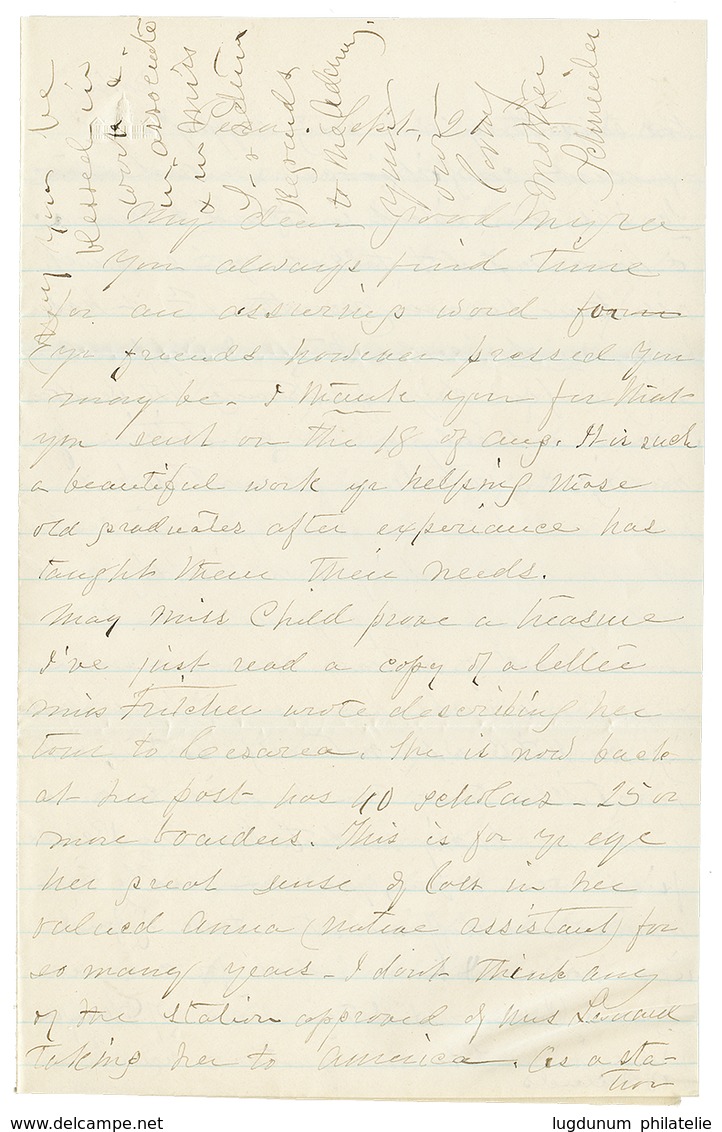 May you be
blessed in
work &
in associate
& in Miss
F's return
Regards
to Mrs Adams.
yours
our
loving
Mother
Schneider
Sept. 2
My dear good Myra
You always find time
for an assuring word for
yr friends however pressed you
may be. I thank you for that
you sent on the 18 of Aug. It is such
a beautiful work yr helping those
old graduates after experience has
taught them their needs.
May Miss Child prove a treasure
I've just read a copy of a letter
Miss Fritcher wrote describing her
tour to Cesarea. She is now back
at her post has 40 scholars - 25 or
more boarders. This is for yr eye
her great sense of loss in her
valued Anna (native assistant) for
so many years - I don't think any
of the station approved of Mrs Leonard
taking her to America. As a sta-
tion
www.delcampe.net
lugdunum philatelie